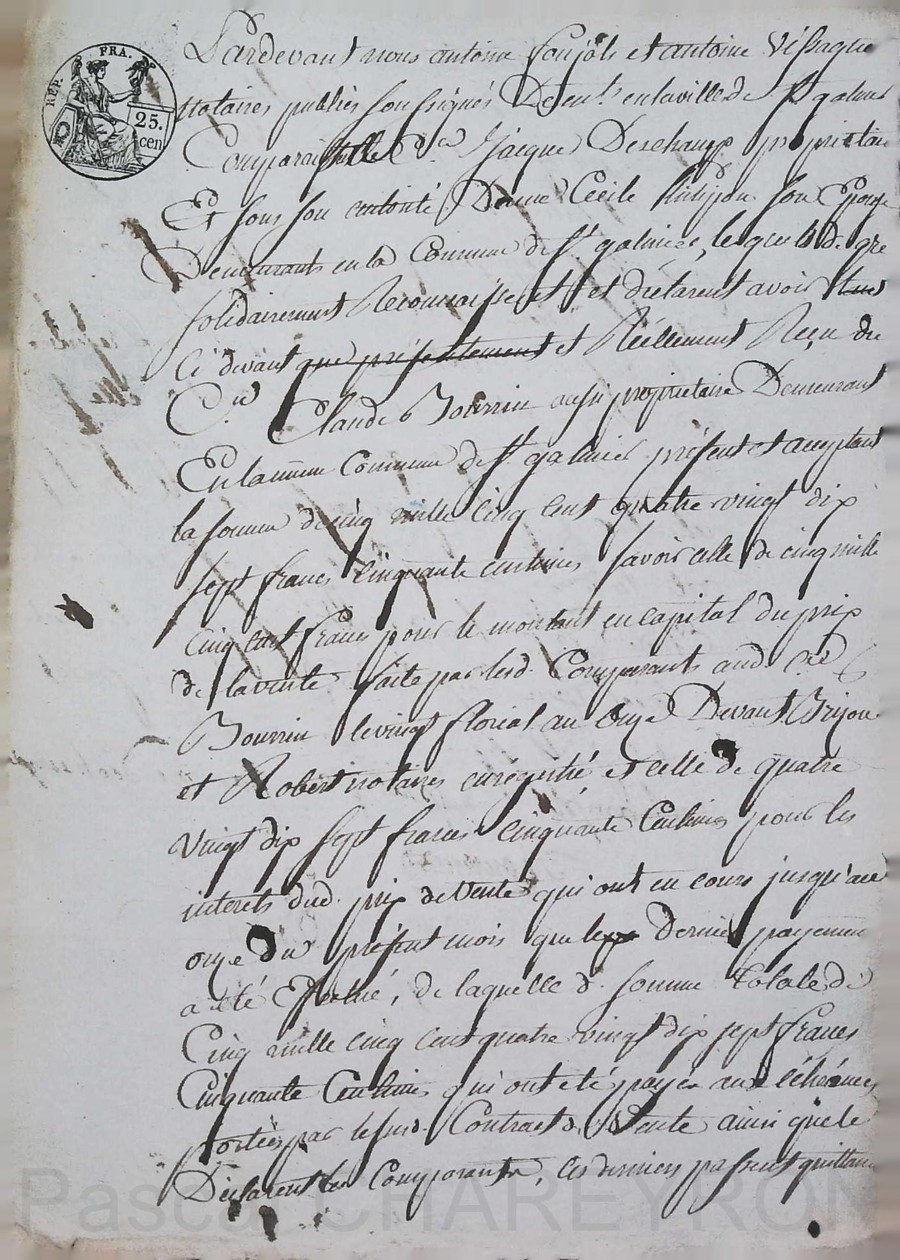 REP. FRA.
25.
cen
Pardevant nous antoine et antoine
notaires publics soussignés Demt. en la ville de St galmier
Comparaissent le Cn Jacque Deschamp proprietaire
Et sous son autorité Dame Cécile son Epouse
Demeurants en la Commune de St galmier, lesquels de gre
solidairement Reconnaissent et déclarent avoir
Ci devant que présentement et Réellement Reçu du
Cn. Claude Bourrin aussi proprietaire Demeurant
En la même Commune de St galmier présent et acceptant
la somme de cinq mille cinq cent quatre vingt dix
sept francs cinquante centimes savoir celle de cinq mille
cinq cent francs pour le montant en capital du prix
de la vente faite par lesd. Comparants aud.
Bourrin le vingt floréal an Onze Devant Brijon
et Robert notaires enrégistré et celle de quatre
Vingt dix sept francs cinquante Centimes pour les
interets dud. prix de Vente qui ont eu cours jusqu'au
onze du présent mois que le Dernier payement
a été Effectué, de laquelle d. somme totale de
Cinq mille cinq cent quatre vingt dix sept francs
Cinquante Centimes qui ont été payés aux échéances
portées par le susd. Contract de Vente ainsi que le
Déclarent les Comparants, ces derniers passent quittance
Pascal CHAREYRON